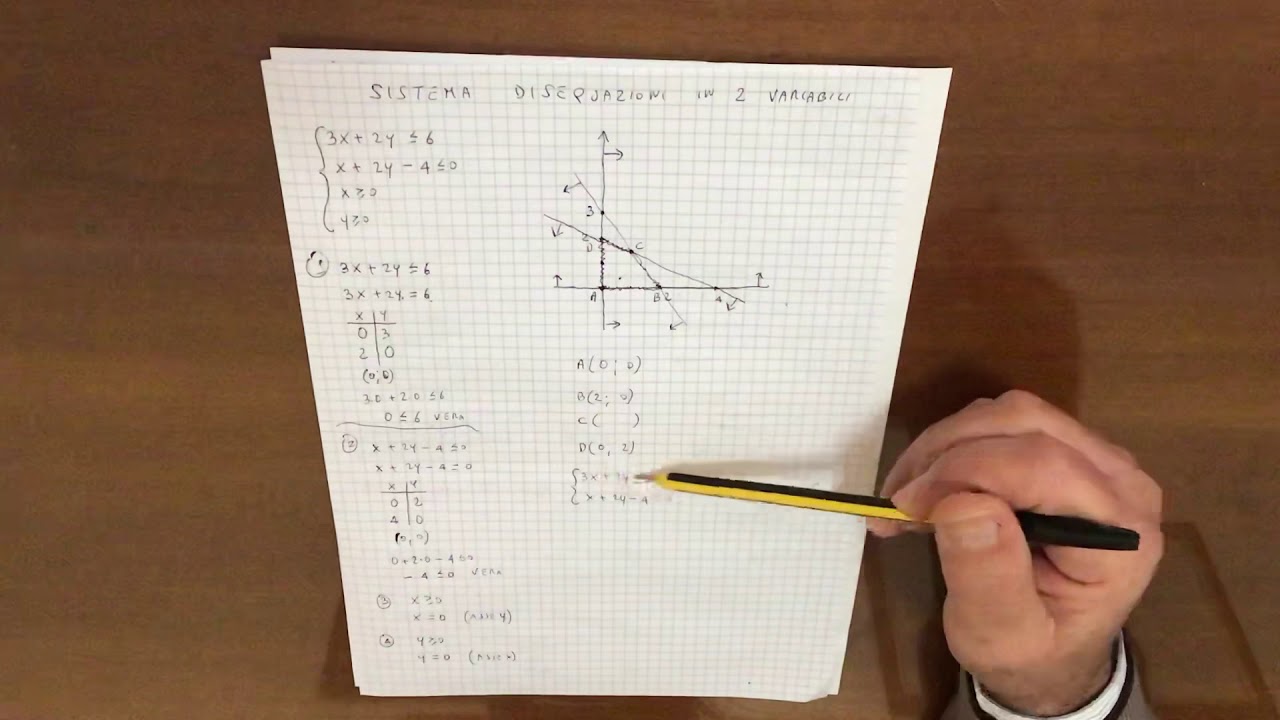 SISTEMA DISEQUAZIONI IN 2 VARIABILI
3x + 2y ≤ 6
x + 2y - 4 ≤ 0
x ≥ 0
y ≥ 0
1 3x + 2y ≤ 6
3x + 2y = 6
x y
0 3
2 0
(0;0)
3·0 + 2·0 ≤ 6
0 ≤ 6 VERA
2 x + 2y - 4 ≤ 0
x + 2y - 4 = 0
x y
0 2
4 0
(0,0)
0 + 2·0 - 4 ≤ 0
- 4 ≤ 0 VERA
3 x ≥ 0
x = 0 (ASSE y)
4 y ≥ 0
y = 0 (ASSE x)
3
2
D C
A B 2 4
A(0; 0)
B(2; 0)
C( )
D(0, 2)
3x + 2y
x + 2y - 4